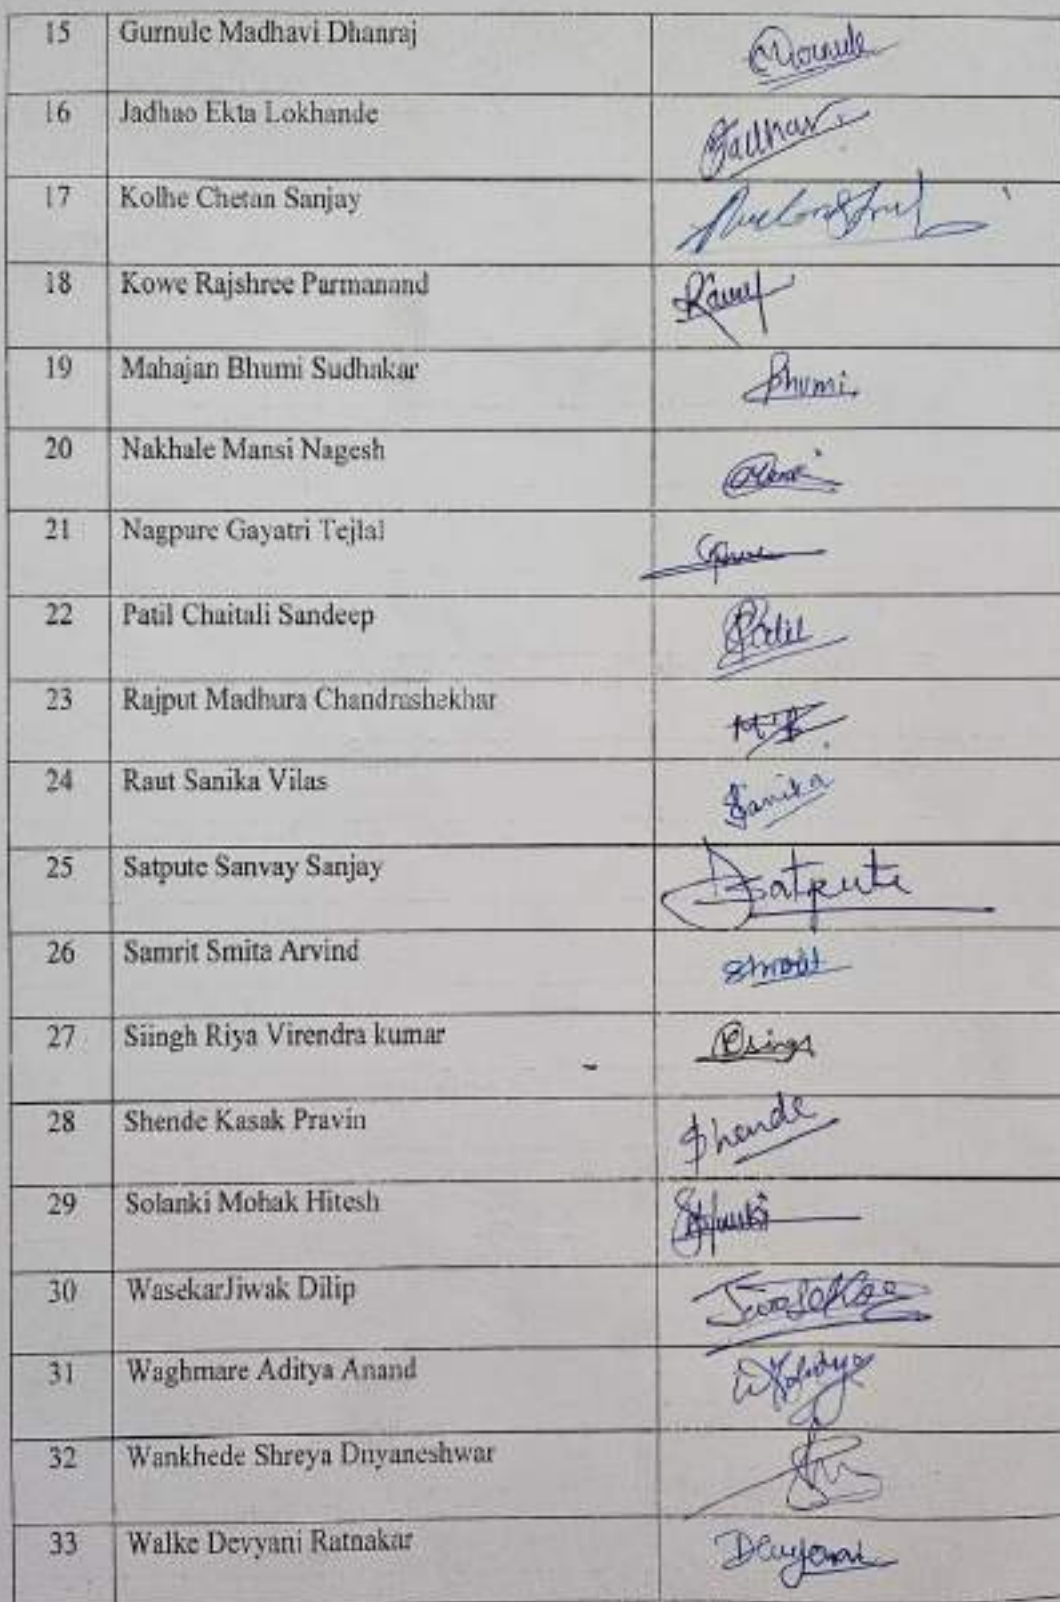 15 Gurnule Madhavi Dhanraj
16 Jadhao Ekta Lokhande Jadhav
17 Kolhe Chetan Sanjay
18 Kowe Rajshree Parmanand
19 Mahajan Bhumi Sudhakar Bhumi
20 Nakhale Mansi Nagesh
21 Nagpure Gayatri Tejlal
22 Patil Chaitali Sandeep Patil
23 Rajput Madhura Chandrashekhar
24 Raut Sanika Vilas Sanika
25 Satpute Sanvay Sanjay Satpute
26 Samrit Smita Arvind
27 Siingh Riya Virendra kumar
28 Shende Kasak Pravin Shende
29 Solanki Mohak Hitesh
30 WasekarJiwak Dilip
31 Waghmare Aditya Anand
32 Wankhede Shreya Dnyaneshwar
33 Walke Devyani Ratnakar